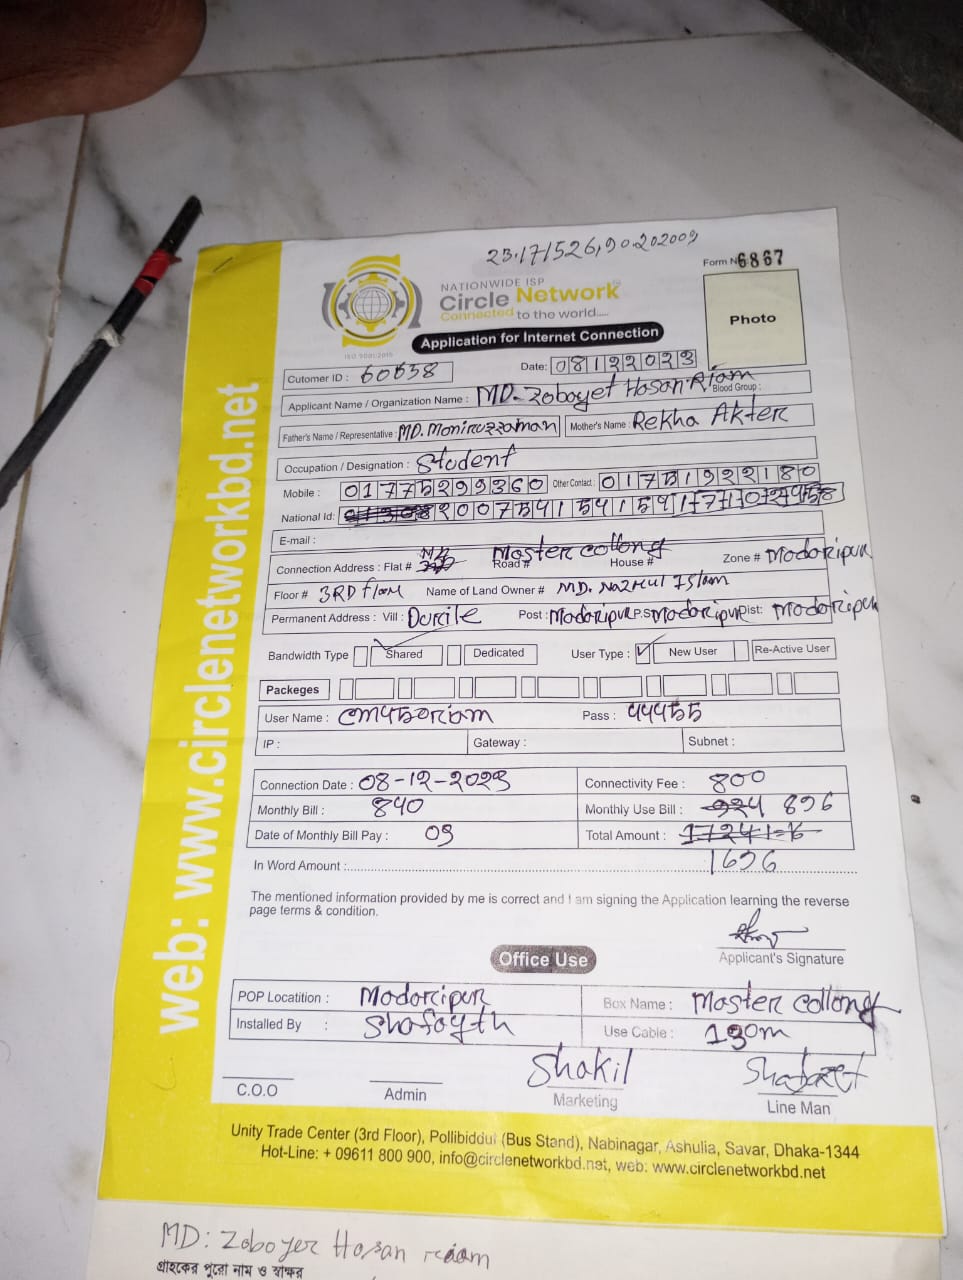 23.171526,90.202009
Form N 6867
NATIONWIDE ISP
Circle Network
Connected to the world.....
ISO 9001:2015
Application for Internet Connection
Photo
Cutomer ID : 60658
Date: 08122023
Applicant Name / Organization Name : MD. Zoboyet Hosan Riam Blood Group :
Father's Name / Representative : MD. Moniruzzaman Mother's Name : Rekha Akter
Occupation / Designation : Student
Mobile : 01775299360 Other Contact : 01731922180
National Id:
E-mail :
Connection Address : Flat # Road # Master collong House # Zone # Modoripur
Floor # 3RD floor Name of Land Owner # MD. Nazmul Islam
Permanent Address : Vill : Durcile Post : Modoripur P.S Modoripur Dist: Modoripur
Bandwidth Type Shared Dedicated User Type : New User Re-Active User
Packeges
User Name : cm450riam Pass : 44455
IP : Gateway : Subnet :
Connection Date : 08-12-2023 Connectivity Fee : 800
Monthly Bill : 840 Monthly Use Bill : 924 896
Date of Monthly Bill Pay : 09 Total Amount :
In Word Amount : 1696
The mentioned information provided by me is correct and I am signing the Application learning the reverse
page terms & condition.
Applicant's Signature
Office Use
POP Locatition : Modoripur Box Name : Master collong
Installed By : Shafayth Use Cable : 130m
Shakil
C.O.O Admin Marketing Line Man
Unity Trade Center (3rd Floor), Pollibiddut (Bus Stand), Nabinagar, Ashulia, Savar, Dhaka-1344
Hot-Line: + 09611 800 900, info@circlenetworkbd.net, web: www.circlenetworkbd.net
web: www.circlenetworkbd.net
MD: Zoboyer Hosan riam
গ্রাহকের পুরো নাম ও স্বাক্ষর